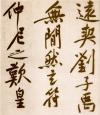 遠契劉子禹
無間然符
仲尼之歎皇